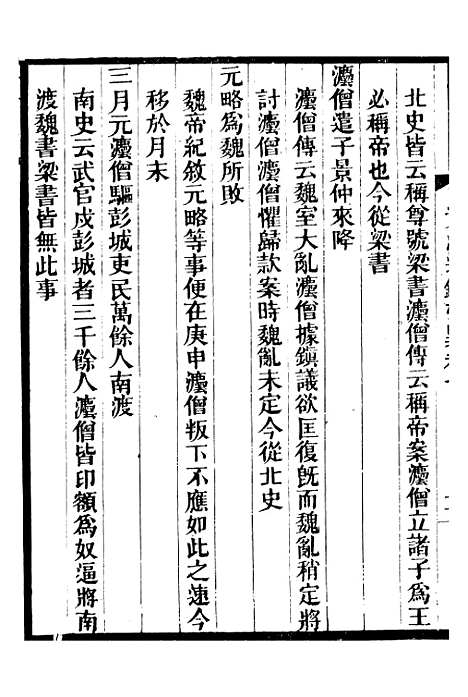 北史皆云稱尊號梁書灋僧傳云稱帝案灋僧立諸子爲王
必稱帝也今從梁書
灋僧遣子景仲來降
灋僧傳云魏室大亂灋僧據鎭議欲匡復旣而魏亂稍定將
討灋僧灋僧懼歸款案時魏亂未定今從北史
元略爲魏所敗
魏帝紀敘元略等事便在庚申灋僧叛下不應如此之速今
移於月末
三月元灋僧驅彭城吏民萬餘人南渡
南史云武官戍彭城者三千餘人灋僧皆印額爲奴逼將南
渡魏書梁書皆無此事